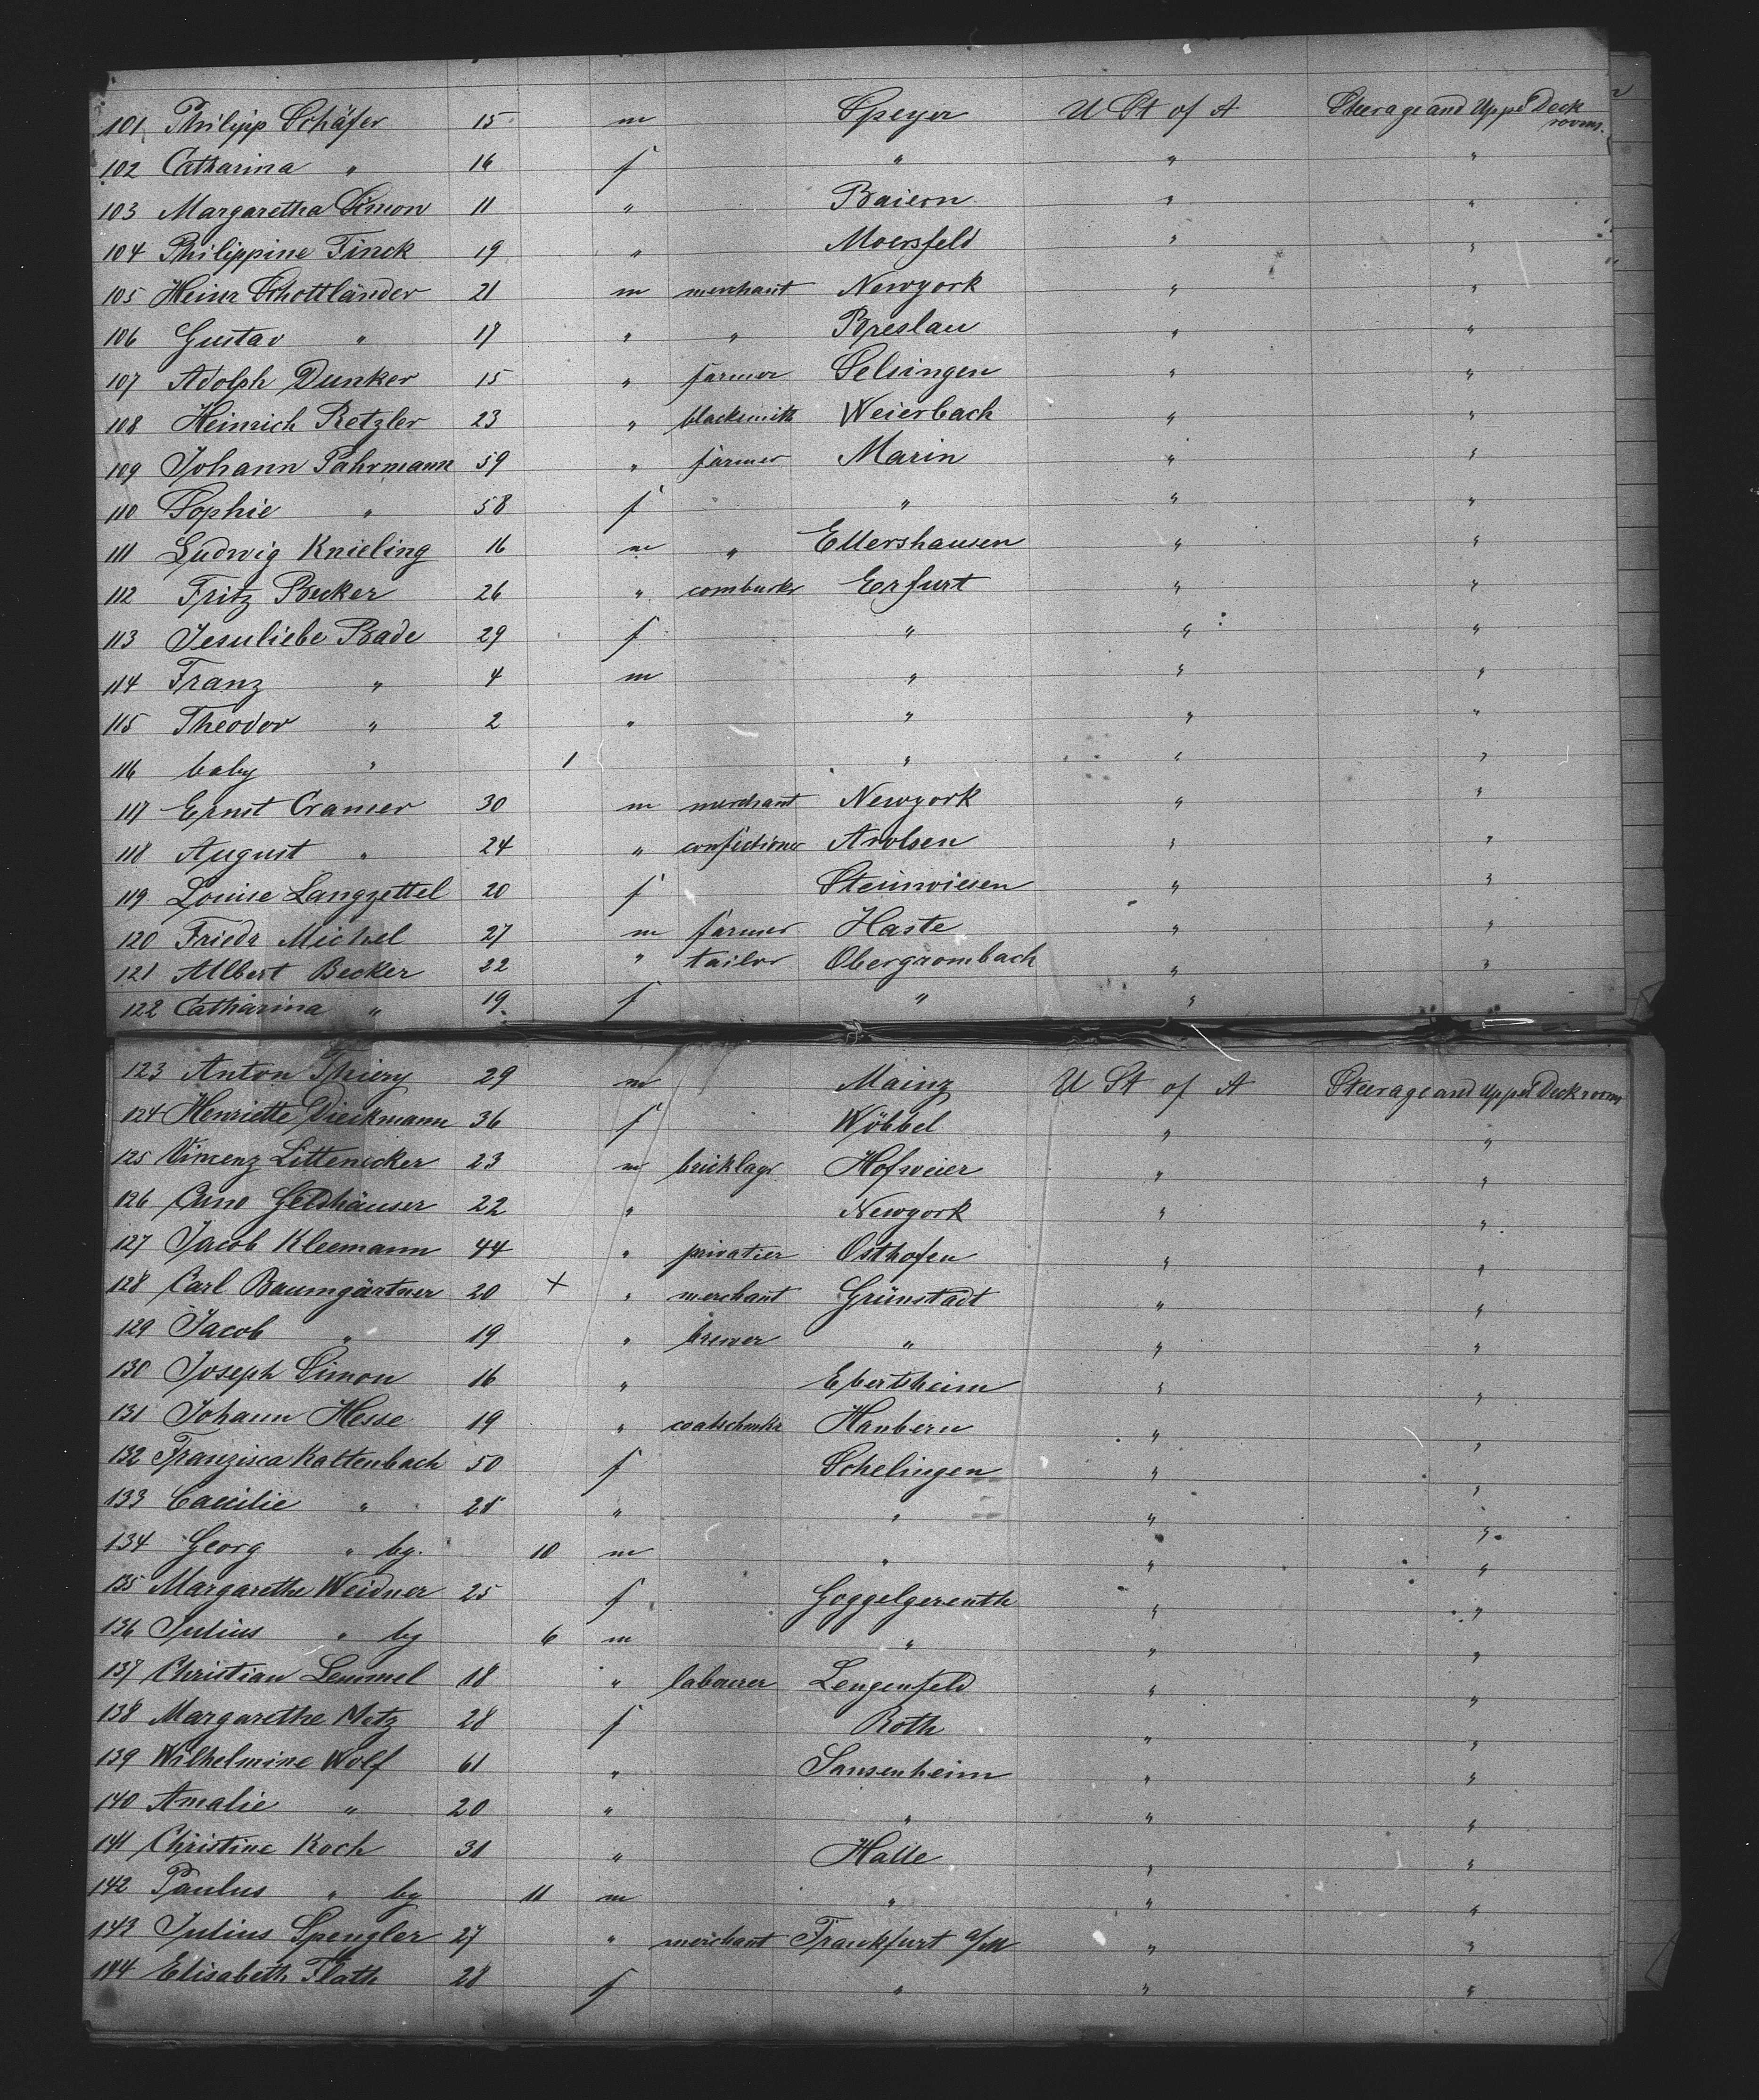 101 Philipp Schäfer 15 m Speyer U St of A Steerage and Upper Deck rooms.
102 Catharina " 16 f " " "
103 Margaretha Simon 11 " Baiern " "
104 Philippine Finck 19 " Moersfeld " "
105 Heinr Schottländer 21 m merchant Newyork " "
106 Gustav " 17 " " Breslau " "
107 Adolph Dunker 15 " farmer Selsingen " "
108 Heinrich Retzler 23 " blacksmith Weierbach " "
109 Johann Pahrmann 59 " farmer Marin " "
110 Sophie " 58 f " " "
111 Ludwig Knieling 16 m " Ellershausen " "
112 Fritz Becker 26 " Erfurt " "
113 Jesuliebe Bade 29 f " " "
114 Franz " 4 m " " "
115 Theodor " 2 " " " "
116 baby " 1 " " "
117 Ernst Cramer 30 m merchant Newyork " "
118 August " 24 " confectioner Arolsen " "
119 Louise Langzettel 20 f Steinwiesen " "
120 Friedr Michel 27 m farmer Haste " "
121 Albert Becker 22 " tailor Obergrombach " "
122 Catharina " 19 f " "
123 Anton Thiery 29 m Mainz U St of A Steerage and Upper Deck rooms
124 Henriette Dieckmann 36 f Wöbbel " "
125 Vincenz Littenecker 23 m bricklayr Hofweier " "
126 Cuno Geldhäuser 22 " Newyork " "
127 Jacob Kleemann 44 " privatier Osthofen " "
128 Carl Baumgärtner 20 + " merchant Grünstadt " "
129 Jacob " 19 " brewer " " "
130 Joseph Simon 16 " Ebertsheim " "
131 Johann Hesse 19 " Hanbern " "
132 Franzisca Kaltenbach 50 f Schelingen " "
133 Caecilie " 21 " " " "
134 Georg " by. 10 m " " "
135 Margarethe Weidner 25 f Goggelgereuth " "
136 Julius " by 6 m " " "
137 Christian Lemmel 18 " labourer Lengenfeld " "
138 Margarethe Metz 28 f Roth " "
139 Wilhelmine Wolf 61 " Sausenheim " "
140 Amalie " 20 " " " "
141 Christine Koch 31 " Halle " "
142 Paulus " by 11 m " " "
143 Julius Spengler 27 " merchant Frankfurt a/M " "
144 Elisabeth Flath 28 f " " "